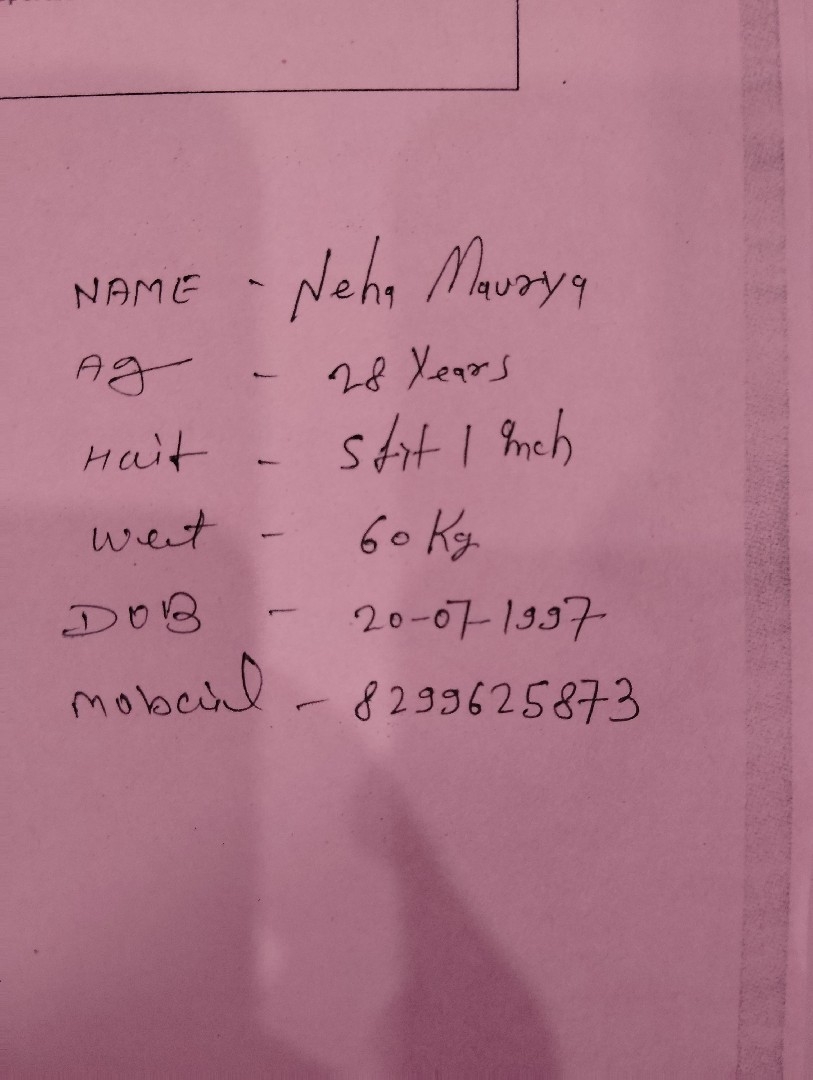 NAME - Neha Maurya
Ag - 28 Years
Hait - 5 fit 1 Inch
Weit - 60 Kg
DOB - 20-07-1997
mobail - 8299625873